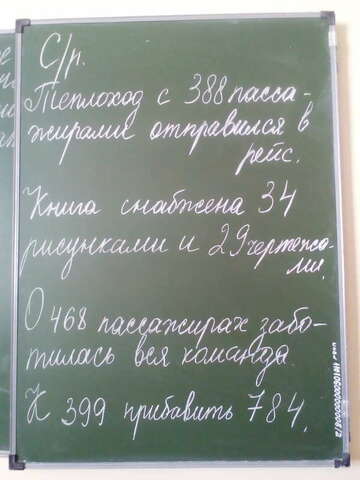 С/р.
Теплоход с 388 пасса-
жирами отправился в
рейс.
Книга снабжена 34
рисунками и 29 чертежа-
ми.
О 468 пассажирах забо-
тилась вся команда.
К 399 прибавить 784.